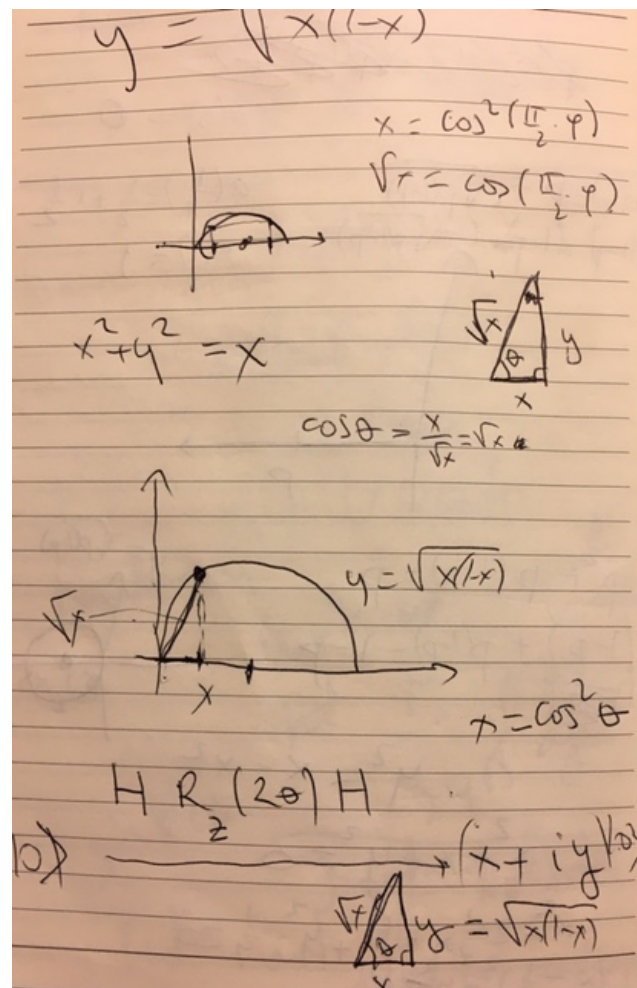 y = √x(1-x)
x = cos²(π/2 · φ)
√x = cos(π/2 · φ)
√x
θ
y
x
x² + y² = x
cosθ = x/√x = √x
y = √x(1-x)
√x
x
x = cos²θ
H R_z (2θ) H
|0⟩ → (x + iy)|0⟩
√x
θ
y = √x(1-x)
x